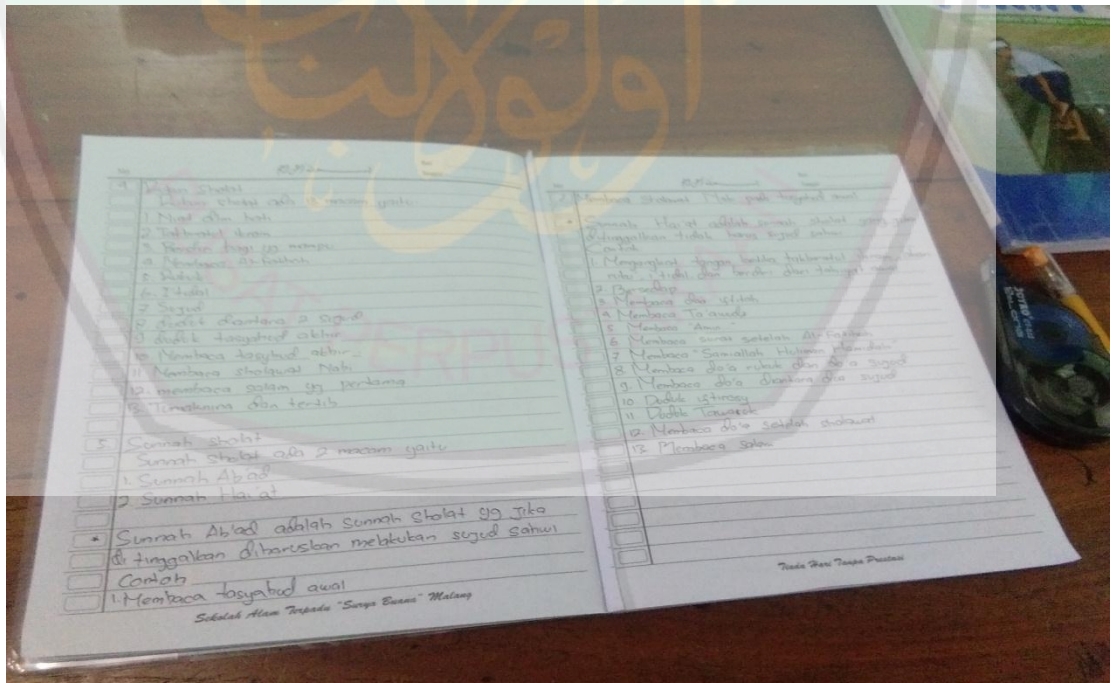 4 Rukun Shalat
Rukun shalat ada 13 macam yaitu
1. Niat dlm hati
2. Takbiratul ihram
3. Berdiri bagi yg mampu
4. Membaca Al-Fatihah
5. Rukuk
6. I'tidal
7. Sujud
8. duduk diantara 2 sujud
9. duduk tasyahud akhir
10. Membaca tasyahud akhir
11. Membaca sholawat Nabi
12. membaca salam yg pertama
13. Tumakmina dan tertib
5. Sunnah shalat
Sunnah shalat ada 2 macam yaitu
1. Sunnah Ab'ad
2. Sunnah Hai'at
* Sunnah Ab'ad adalah Sunnah Shalat yg Jika
di tinggalkan diharuskan melakukan sujud sahwi
Contoh
1. Membaca tasyahud awal
Sekolah Alam Terpadu "Surya Buana" Malang
2. Membaca sholawat Nabi pada tasyahud awal
* Sunnah Hai'at adalah sunnah sholat yang
ditinggalkan tidak harus sujud sahwi
contoh
1. Mengangkat tangan ketika takbiratul
i'tidal dan berdiri dari tahiyat awal
2. Bersedekap
3. Membaca doa iftitah
4. Membaca Ta'awudz
5. Membaca "Amin"
6. Membaca surat setelah Al-Fatihah
7. Membaca "Samiallah
8. Membaca do'a rukuk dan do'a sujud
9. Membaca do'a diantara dua sujud
10. Duduk istirosy
11. Duduk Tawarok
12. Membaca do'a setelah sholawat
13. Membaca salam
Tiada Hari Tanpa Prestasi
JOYKO